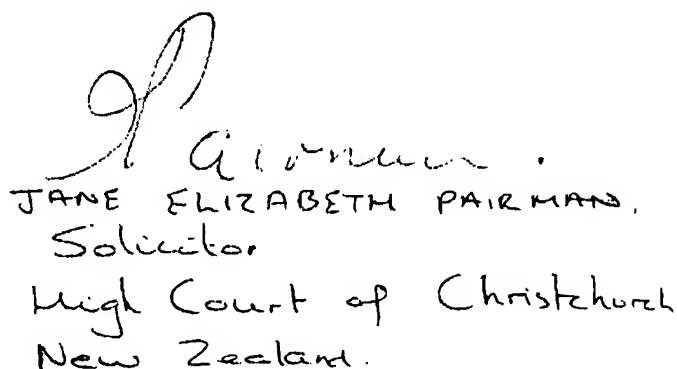 JANE ELIZABETH PAIRMAN.
Solicitor
High Court of Christchurch
New Zealand.